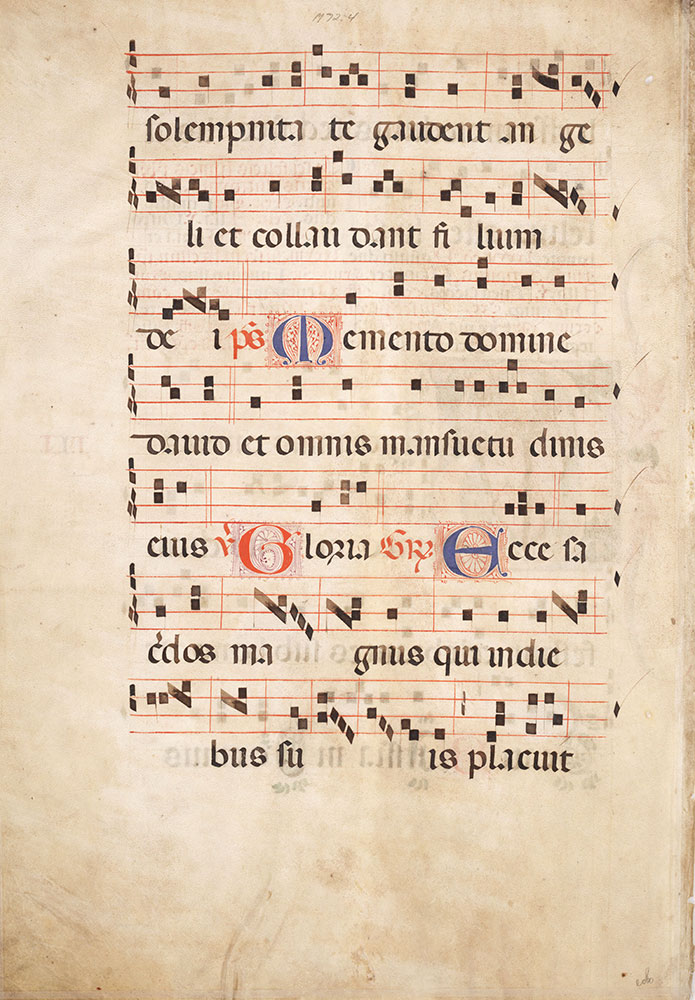 M72:4
solempnita te gaudent an ge
li et collau dant fi lium
de i ps Memento domine
dauid et omnis mansuetu dinis
eius V Gloria Gr Ecce sa
cerdos ma gnus qui in die
bus su is placuit